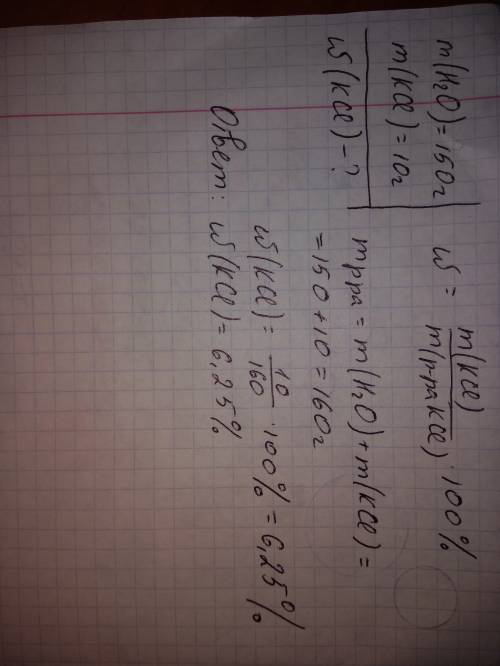 m(H₂O)=150г
m(KCl)=10г
ω(KCl)-?
ω = m(KCl)/m(р-ра KCl) · 100%
mр.ра = m(H₂O)+m(KCl)=
=150+10=160г
ω(KCl)= 10/160 · 100% = 6,25%
Ответ: ω(KCl)=6,25%